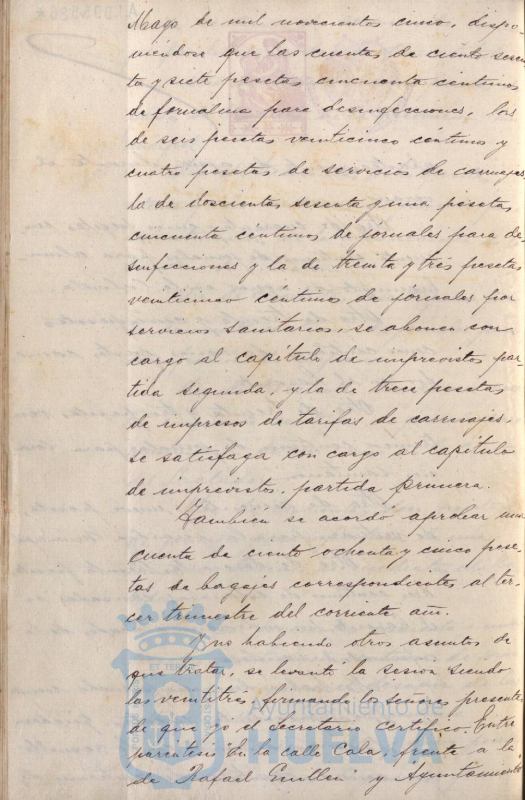 Mayo de mil novecientos cinco, dispo-
niéndose que las cuentas de ciento sesen-
ta y siete pesetas cincuenta céntimos
de formalina para desinfecciones, las
de seis pesetas veinticinco céntimos y
cuatro pesetas de servicios de carruajes,
la de doscientas sesenta y una pesetas
cincuenta céntimos de jornales para de-
sinfecciones y la de treinta y tres pesetas
veinticinco céntimos de jornales por
servicios sanitarios, se abonen con
cargo al capítulo de imprevistos par-
tida segunda, y la de trece pesetas
de impresos de tarifas de carruajes,
se satisfaga con cargo al capítulo
de imprevistos, partida primera.
Tambien se acordó aprobar una
cuenta de ciento ochenta y cinco pese-
tas de bagajes correspondientes al ter-
cer trimestre del corriente año.
Y no habiendo otros asuntos de
que tratar, se levantó la sesión siendo
las veintitrés, firmando los señores presentes
de que yo el Secretario certifico. Entre
parentesis "En la calle Cala, frente á la
de Rafael Guillen" y Ayuntamiento
Ayuntamiento de
HUELVA